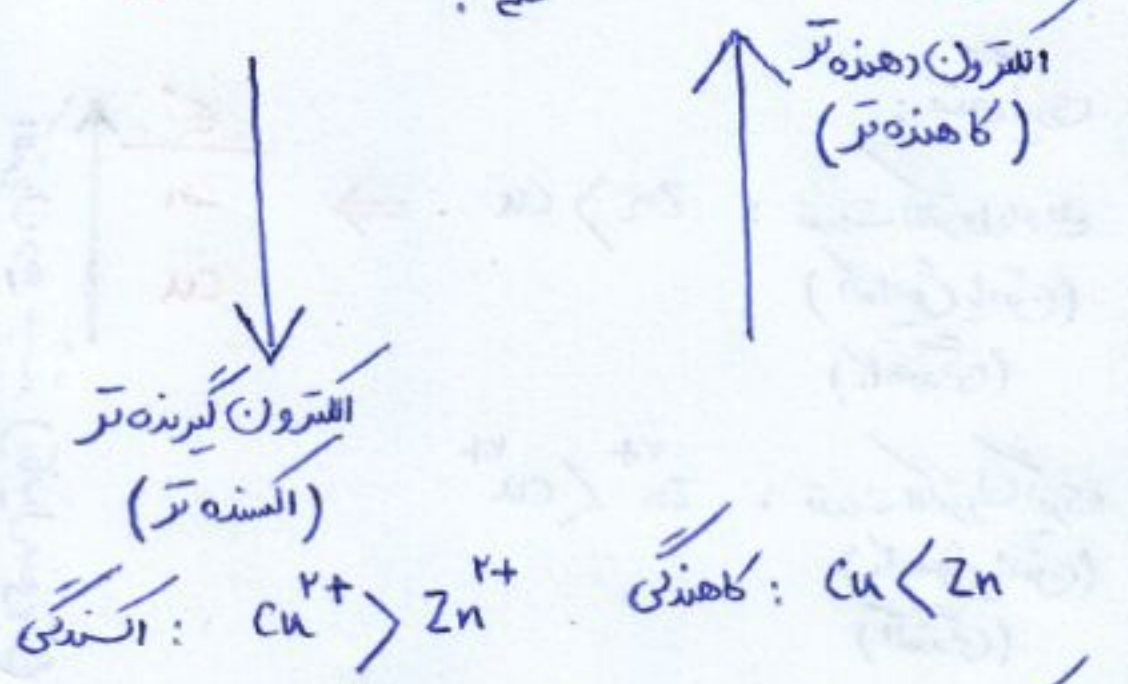 الکترون دهنده تر
(کاهنده تر)
الکترون گیرنده تر
(اکسنده تر)
کاهندگی : Cu < Zn
اکسندگی : Cu²⁺ > Zn²⁺